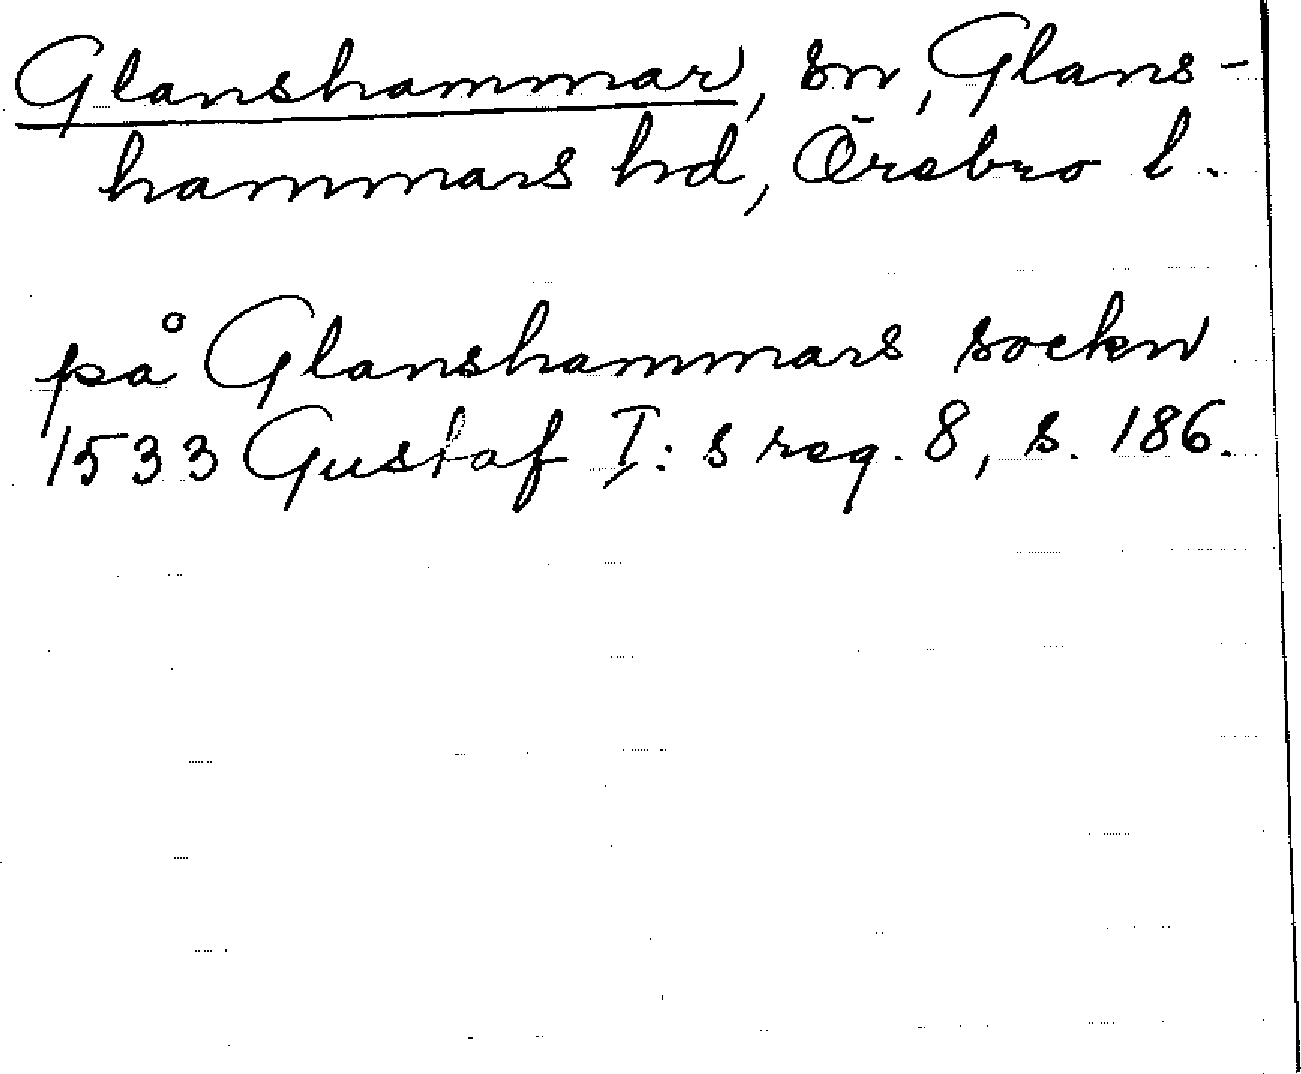 Glanshammar, sn, Glans-
hammars hd, Örebro l.
på Glanshammars sockn
1533 Gustaf I:s reg. 8, s. 186.